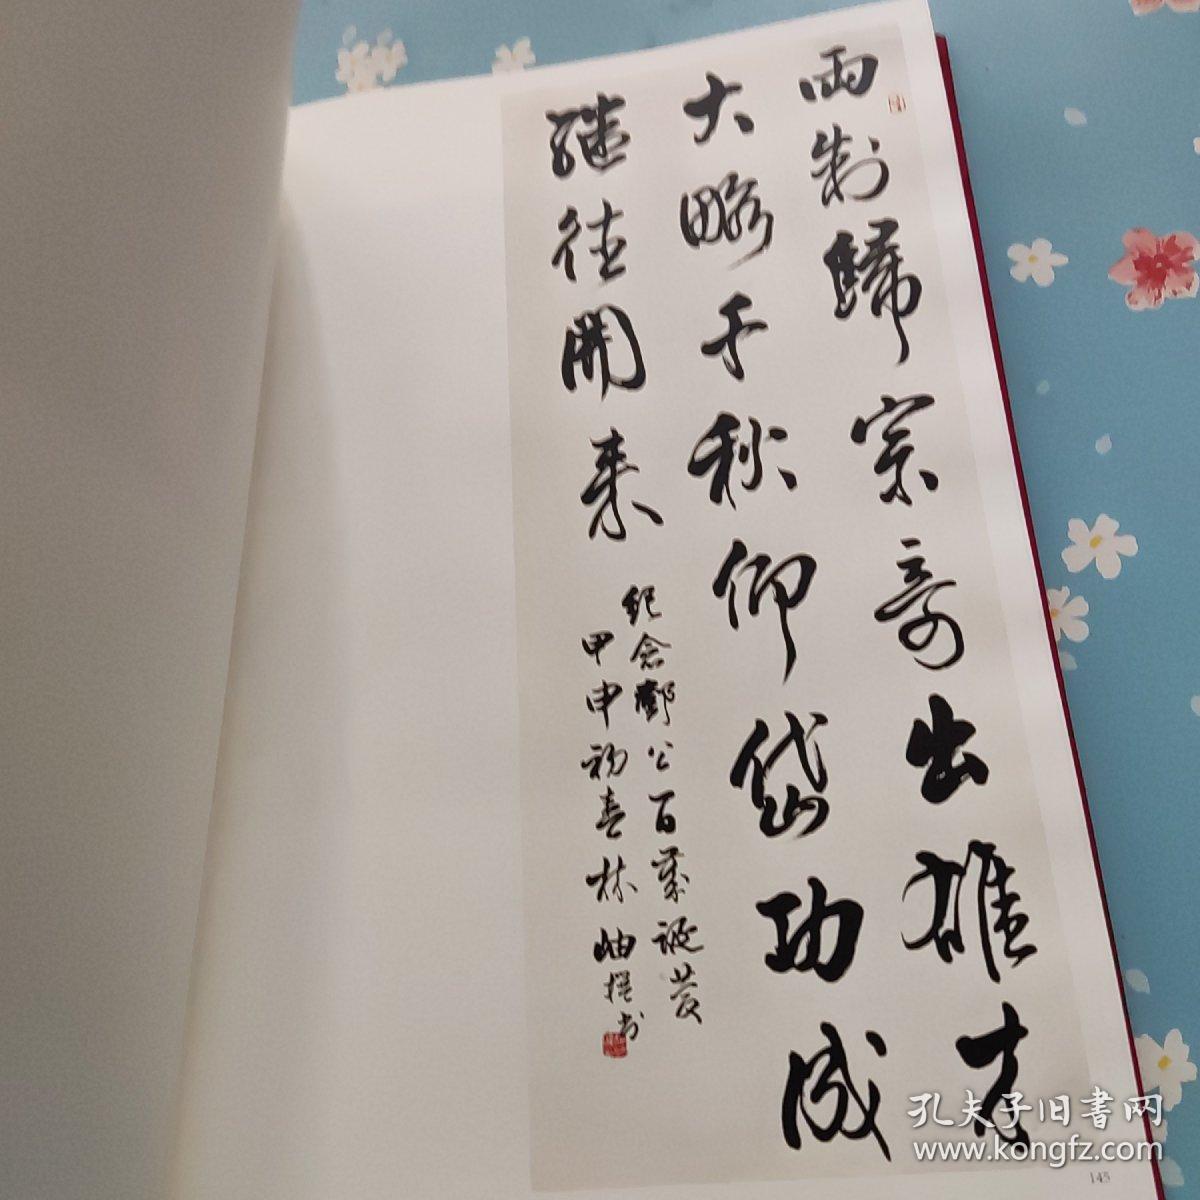 兩制歸宗奇出雄才
大略千秋仰岱功成
繼往開来
紀念鄧公百岁誕辰
甲申初春林岫撰书
145
孔夫子旧書网
www.kongfz.com